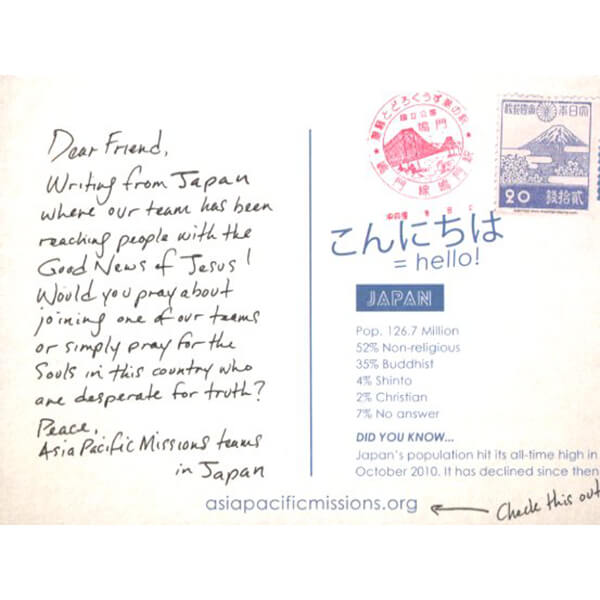 Dear Friend,
Writing from Japan
where our team has been
reaching people with the
Good News of Jesus!
Would you pray about
joining one of our teams
or simply pray for the
Souls in this country who
are desperate for truth?
Peace,
Asia Pacific Missions teams
in Japan
鳴門
鳴門線鳴門駅
20 錢拾貳
こんにちは
= hello!
JAPAN
Pop. 126.7 Million
52% Non-religious
35% Buddhist
4% Shinto
2% Christian
7% No answer
DID YOU KNOW...
Japan's population hit its all-time high in
October 2010. It has declined since then
asiapacificmissions.org
Check this out